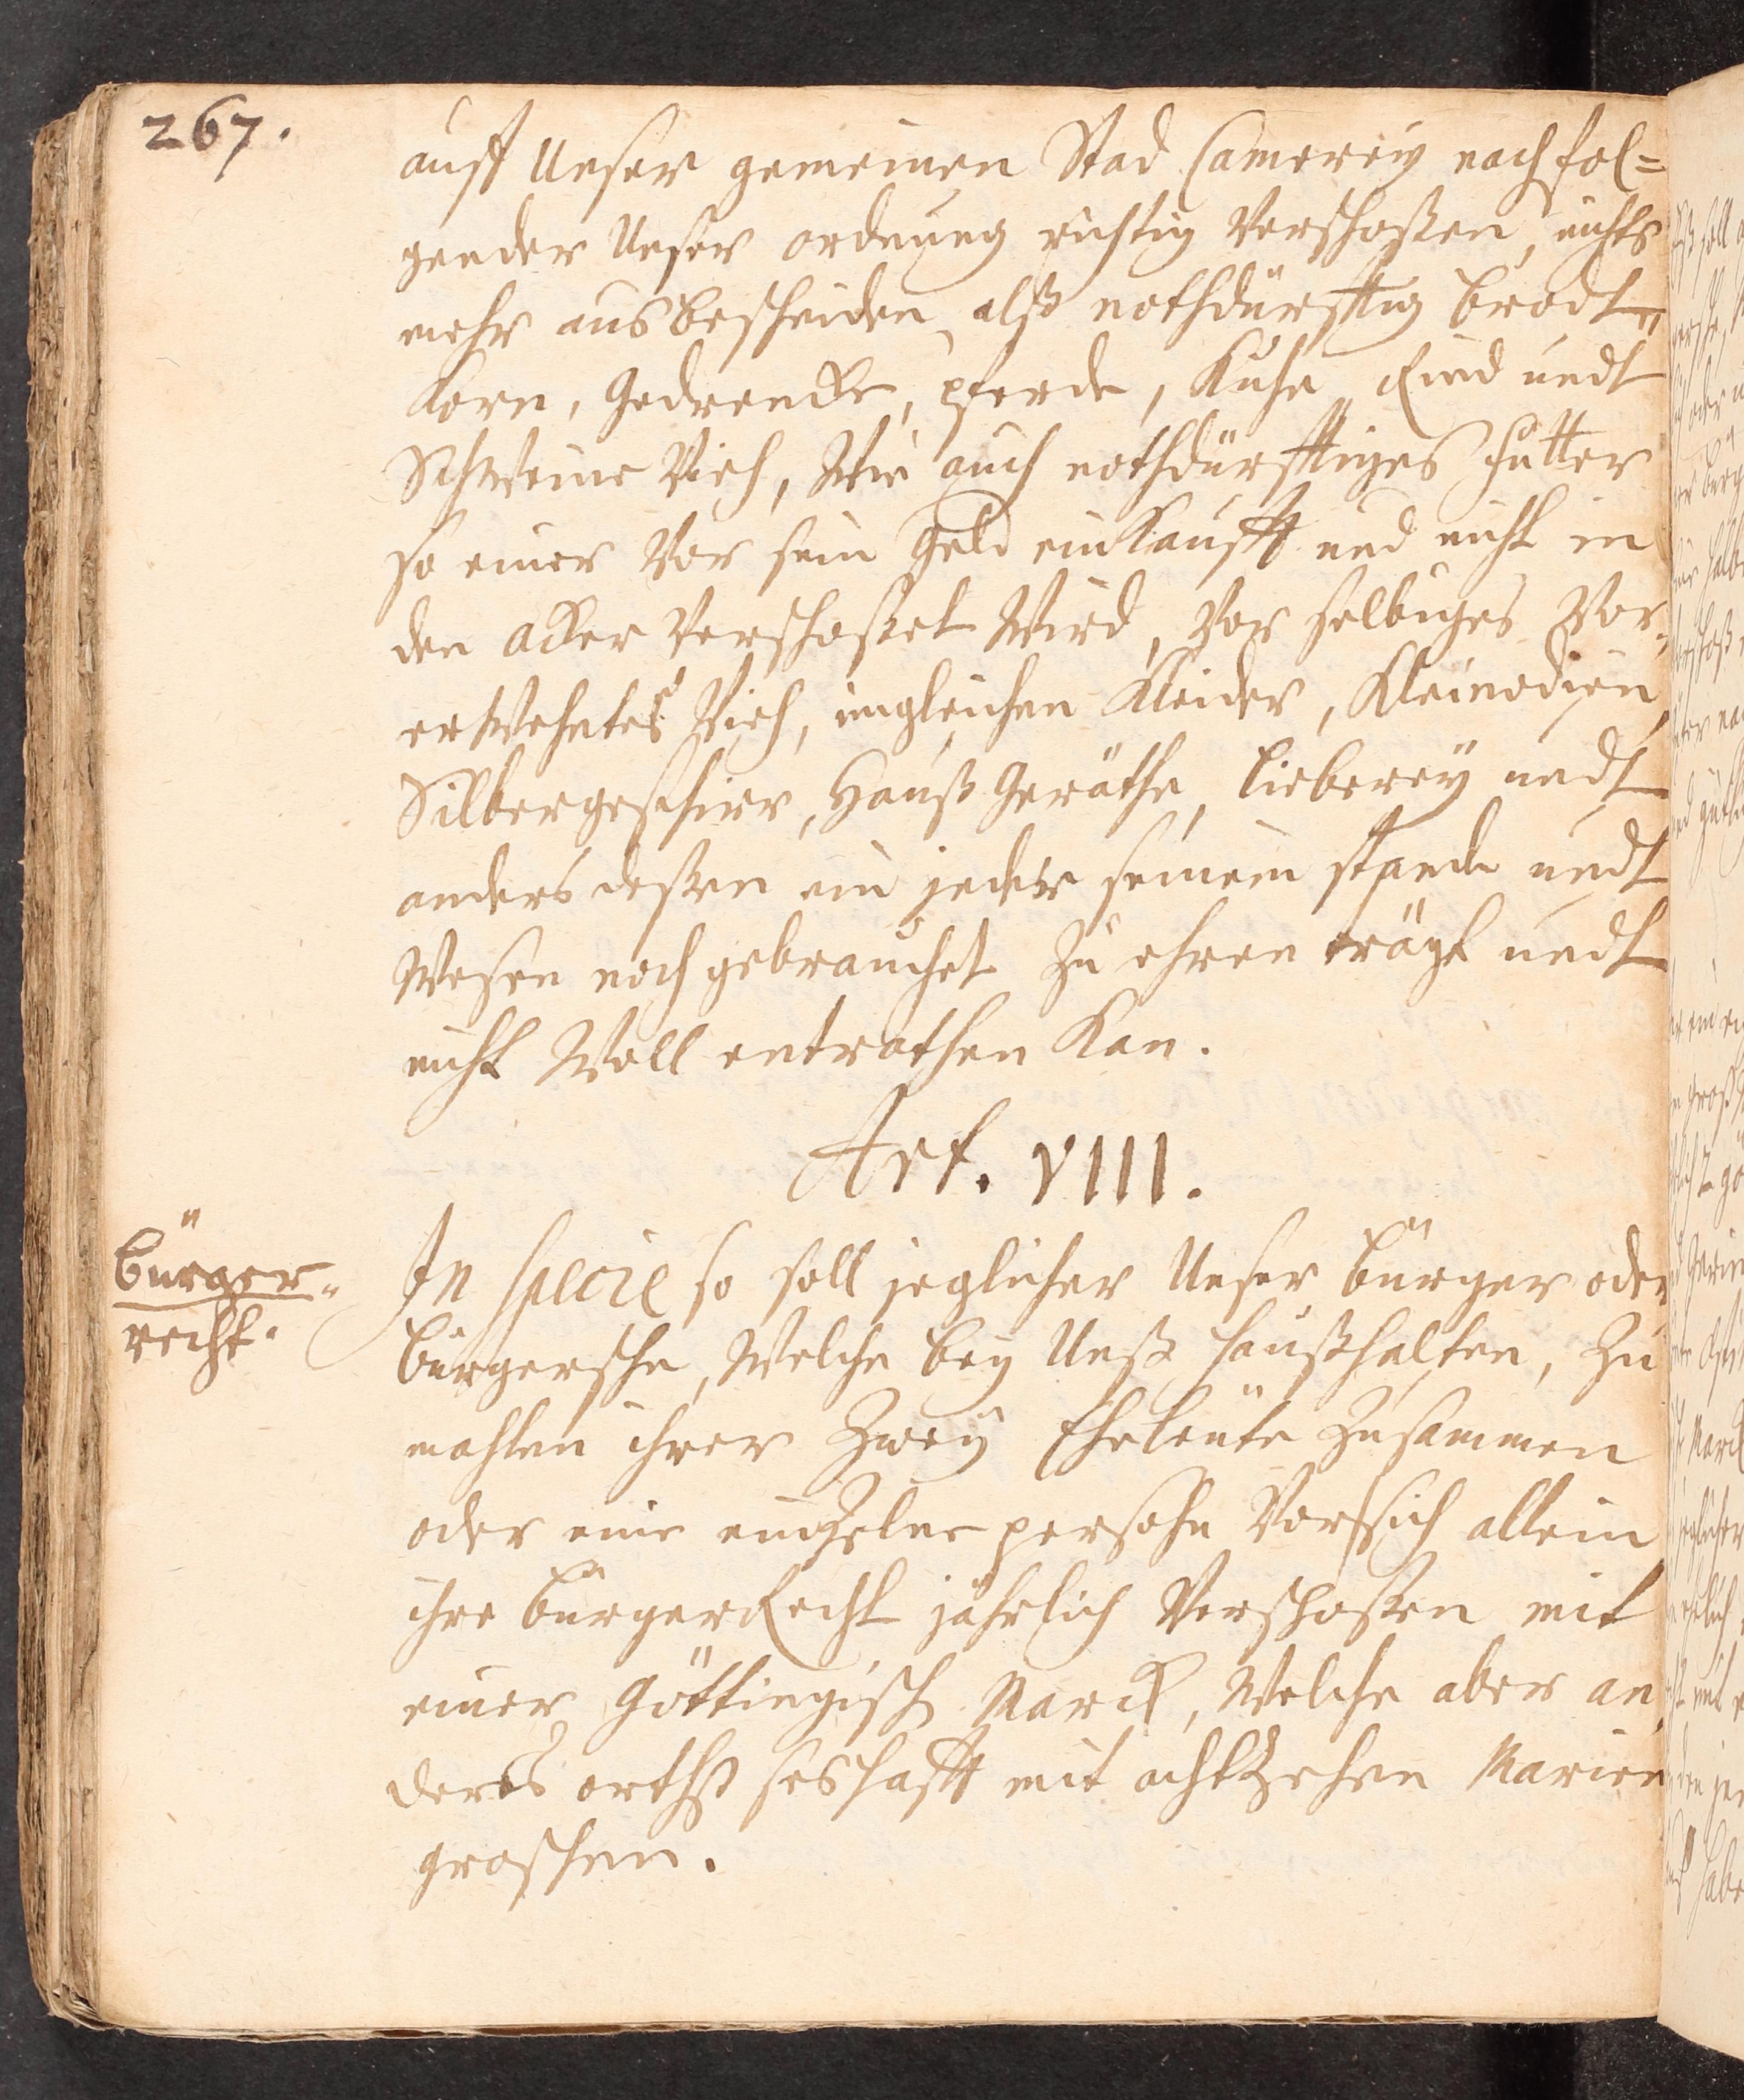 267.
auff Unser gemeinen Stad Camerey nach fol=
gender Unser ordnung richtig Verschoßen, nichts
mehr ausbescheiden, alß nothdürfftig brodt,,
Korn, Gedrencke, pferde, Kühe, Rind undt
Schweine Vieh, Wie auch nothdürfftiges Futter
so einer Vor sein Geld einkaufft und nicht in
den acker Verschoßet Wird, Vor selbiges Vor,,
erwehntes Vieh, imgleichen Kleider, Kleinodien,
Silbergeschirr, Hauß Geräthe, Lieberey undt
anders deßen ein jeder seinem stande undt
Wesen noch gebrauchet zu ehren trägt undt
nicht Woll entrathen Kan.
Art. VIII.
Bürger,,
recht.
In specie so soll jeglicher Unser bürger oder
bürgersche, Welche bey Unß haußhalten, zu
mahlen ihrer Zwey Eheleute zusammen
oder eine eintzelne persohn Vor sich allein,
ihre bürgerRecht jährlich Verschoßen mit
einer Göttingisch Marck, Welche aber an,,
ders orthß seshafft mit achtzehen Marien
groschen.